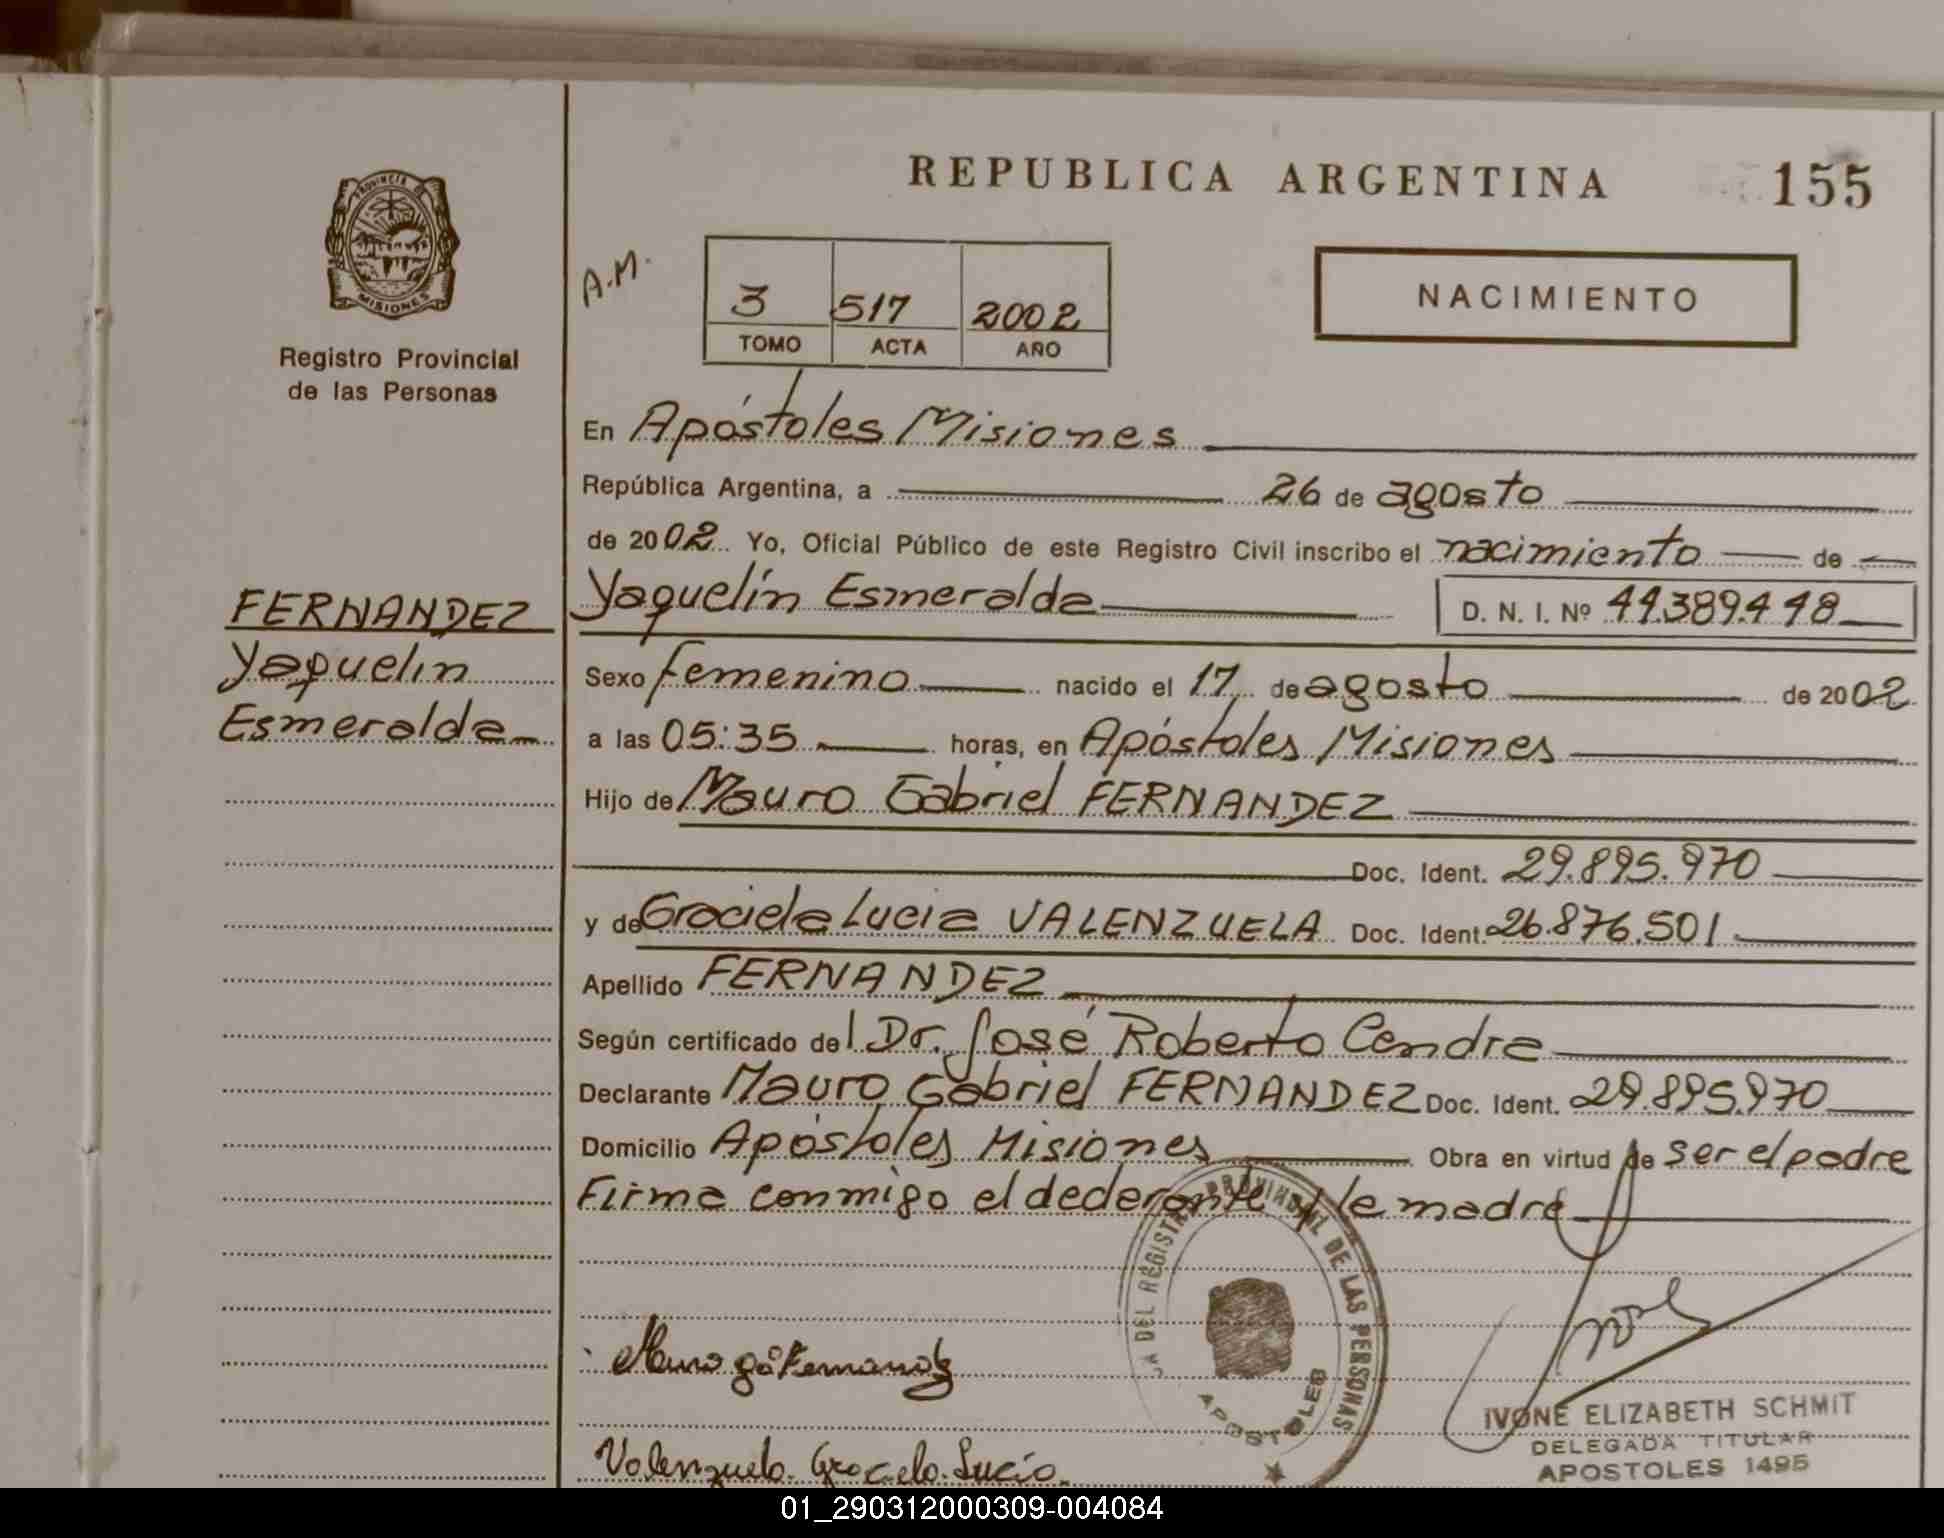 REPUBLICA ARGENTINA
155
PROVINCIA DE
MISIONES
Registro Provincial
de las Personas
A.M.
3 517 2002
TOMO ACTA AÑO
NACIMIENTO
En Apóstoles Misiones
República Argentina, a 26 de agosto
de 2002 Yo, Oficial Público de este Registro Civil inscribo el nacimiento de
Yaquelín Esmeralda D. N. I. Nº 44.389.448
FERNANDEZ
Yaquelin
Esmeralda
Sexo femenino nacido el 17 de agosto de 2002
a las 05:35 horas, en Apóstoles Misiones
Hijo de Mauro Gabriel FERNANDEZ
Doc. Ident. 29.895.970
y de Graciela Lucia VALENZUELA Doc. Ident. 26.876.501
Apellido FERNANDEZ
Según certificado del Dr. José Roberto Cendra
Declarante Mauro Gabriel FERNANDEZ Doc. Ident. 29.895.970
Domicilio Apóstoles Misiones Obra en virtud de ser el padre
Firma conmigo el declarante y la madre
DEL REGISTRO PROVINCIAL DE LAS PERSONAS
APOSTOLES
Valenzuela Graciela Lucia
IVONE ELIZABETH SCHMIT
DELEGADA TITULAR
APOSTOLES 1495
01_290312000309-004084